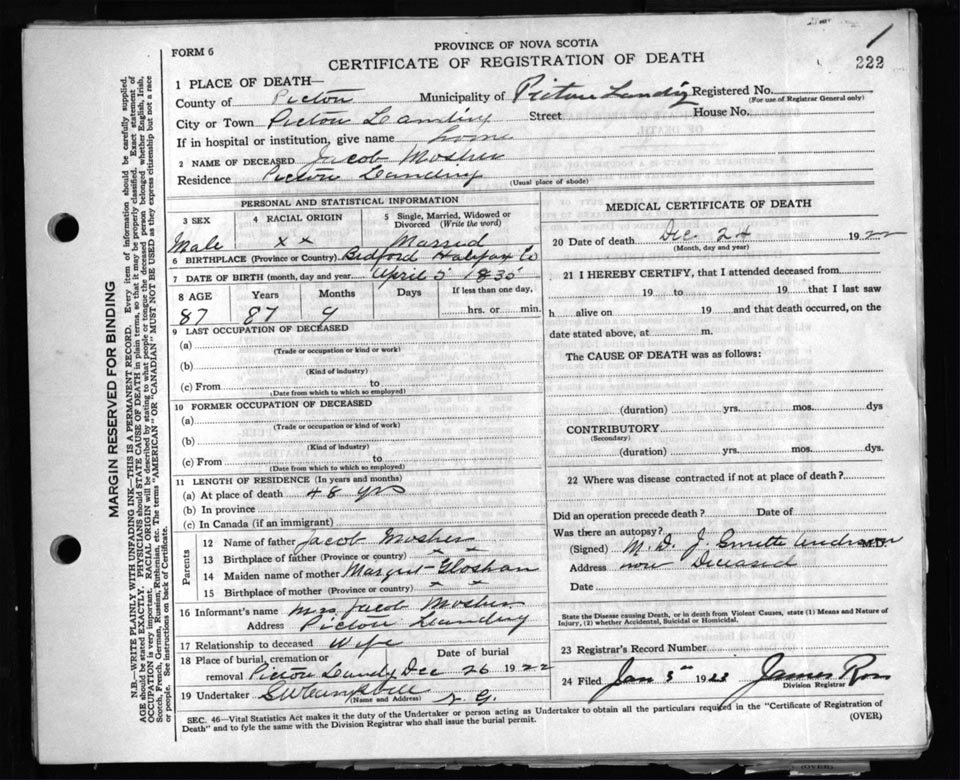 1
222
FORM 6
PROVINCE OF NOVA SCOTIA
CERTIFICATE OF REGISTRATION OF DEATH
1 PLACE OF DEATH—
County of Pictou Municipality of Pictou Landing Registered No.
(For use of Registrar General only)
City or Town Pictou Landing Street House No.
If in hospital or institution, give name home
2 NAME OF DECEASED Jacob Mosher
Residence Pictou Landing
(Usual place of abode)
PERSONAL AND STATISTICAL INFORMATION
3 SEX 4 RACIAL ORIGIN 5 Single, Married, Widowed or Divorced (Write the word)
Male x x Married
6 BIRTHPLACE (Province or Country) Bedford Halifax Co
7 DATE OF BIRTH (month, day and year) April 5 1835
8 AGE Years Months Days If less than one day,
87 87 9 hrs. or min.
9 LAST OCCUPATION OF DECEASED
(a)
(Trade or occupation or kind or work)
(b)
(Kind of industry)
(c) From to
(Date from which to which so employed)
10 FORMER OCCUPATION OF DECEASED
(a)
(Trade or occupation or kind of work)
(b)
(Kind of industry)
(c) From to
(Date from which to which so employed)
11 LENGTH OF RESIDENCE (In years and months)
(a) At place of death 48 yrs
(b) In province
(c) In Canada (if an immigrant)
Parents
12 Name of father Jacob Mosher
13 Birthplace of father (Province or country) x x
14 Maiden name of mother
15 Birthplace of mother (Province or country) x x
16 Informant's name Mrs Jacob Mosher
Address Pictou Landing
17 Relationship to deceased Wife
18 Place of burial, cremation or removal Date of burial
Pictou Landg Dec 26 1922
19 Undertaker N. G.
(Name and Address)
MEDICAL CERTIFICATE OF DEATH
20 Date of death Dec 24 1922
(Month, day and year)
21 I HEREBY CERTIFY, that I attended deceased from
19 to 19 that I last saw
h alive on 19 and that death occurred, on the
date stated above, at m.
The CAUSE OF DEATH was as follows:
(duration) yrs. mos. dys
CONTRIBUTORY
(Secondary)
(duration) yrs. mos. dys
22 Where was disease contracted if not at place of death?
Did an operation precede death? Date of
Was there an autopsy?
(Signed) M. D. J. M.D.
Address now Deceased
Date
State the Disease causing Death, or in death from Violent Causes, state (1) Means and Nature of
Injury, (2) whether Accidental, Suicidal or Homicidal.
23 Registrar's Record Number
24 Filed Jan 3rd 1923 James Ross
Division Registrar
SEC. 46—Vital Statistics Act makes it the duty of the Undertaker or person acting as Undertaker to obtain all the particulars required in the "Certificate of Registration of
Death" and to fyle the same with the Division Registrar who shall issue the burial permit.
(OVER)
MARGIN RESERVED FOR BINDING
N.B.—WRITE PLAINLY WITH UNFADING INK—THIS IS A PERMANENT RECORD. Every item of information should be carefully supplied.
AGE should be stated EXACTLY. PHYSICIANS should STATE CAUSE OF DEATH in plain terms, so that it may be properly classified. Exact statement of
OCCUPATION is very important. RACIAL ORIGIN will be described by stating to what people or tongue the deceased person belonged whether English, Irish,
Scotch, French, German, Russian, Ruthenian, etc. The terms "AMERICAN" OR "CANADIAN" MUST NOT BE USED as they express citizenship but not a race
or people. See instructions on back of Certificate.
(OVER)